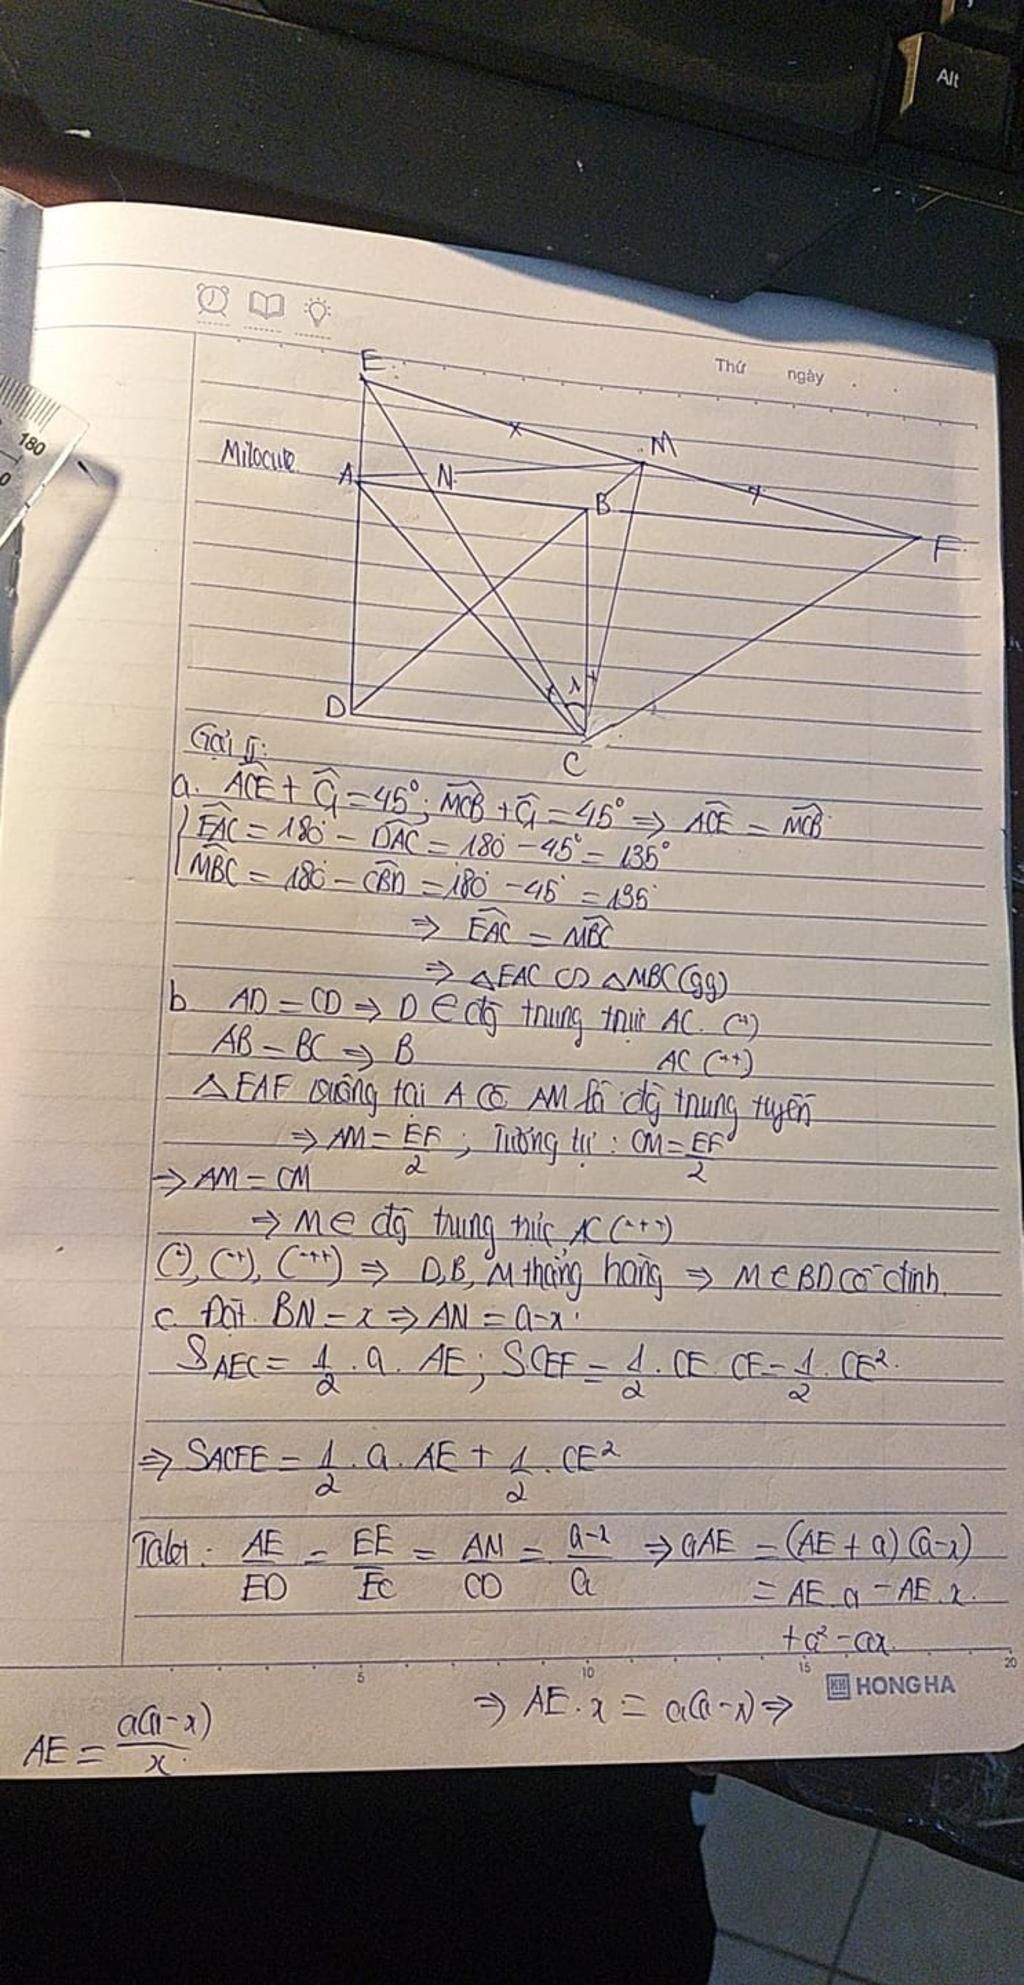 Alt
180
0
Thứ ngày
E
M
Milocue
A N
B
F
D
1
C
Gợi ý:
a. ACE + C1 = 45°; MCB + C1 = 45° => ACE = MCB
EAC = 180 - DAC = 180 - 45° = 135°
MBC = 180 - CBD = 180 - 45 = 135
=> EAC = MBC
=> △EAC ∽ △MBC (gg)
b AD = CD => D ∈ đg trung trực AC. (*)
AB = BC => B AC (**)
△EAF vuông tại A có AM là đg trung tuyến
=> AM = EF/2; Tương tự: CM = EF/2
=> AM = CM
=> M ∈ đg trung trực AC (***)
(*), (**), (***) => D, B, M thẳng hàng => M ∈ BD cố định.
c. Đặt BN = x => AN = a-x.
SAEC = 1/2 . a. AE; SCEF = 1/2 . CE. CF = 1/2 . CE².
=> SACFE = 1/2 . a. AE + 1/2 . CE²
Talet: AE/ED = EE/EC = AN/CD = a-x/a => aAE = (AE + a)(a-x)
= AE.a - AE.x.
+a² - ax.
5 10 15 20
HONG HA
=> AE.x = a(a-x) =>
AE = a(a-x)/x